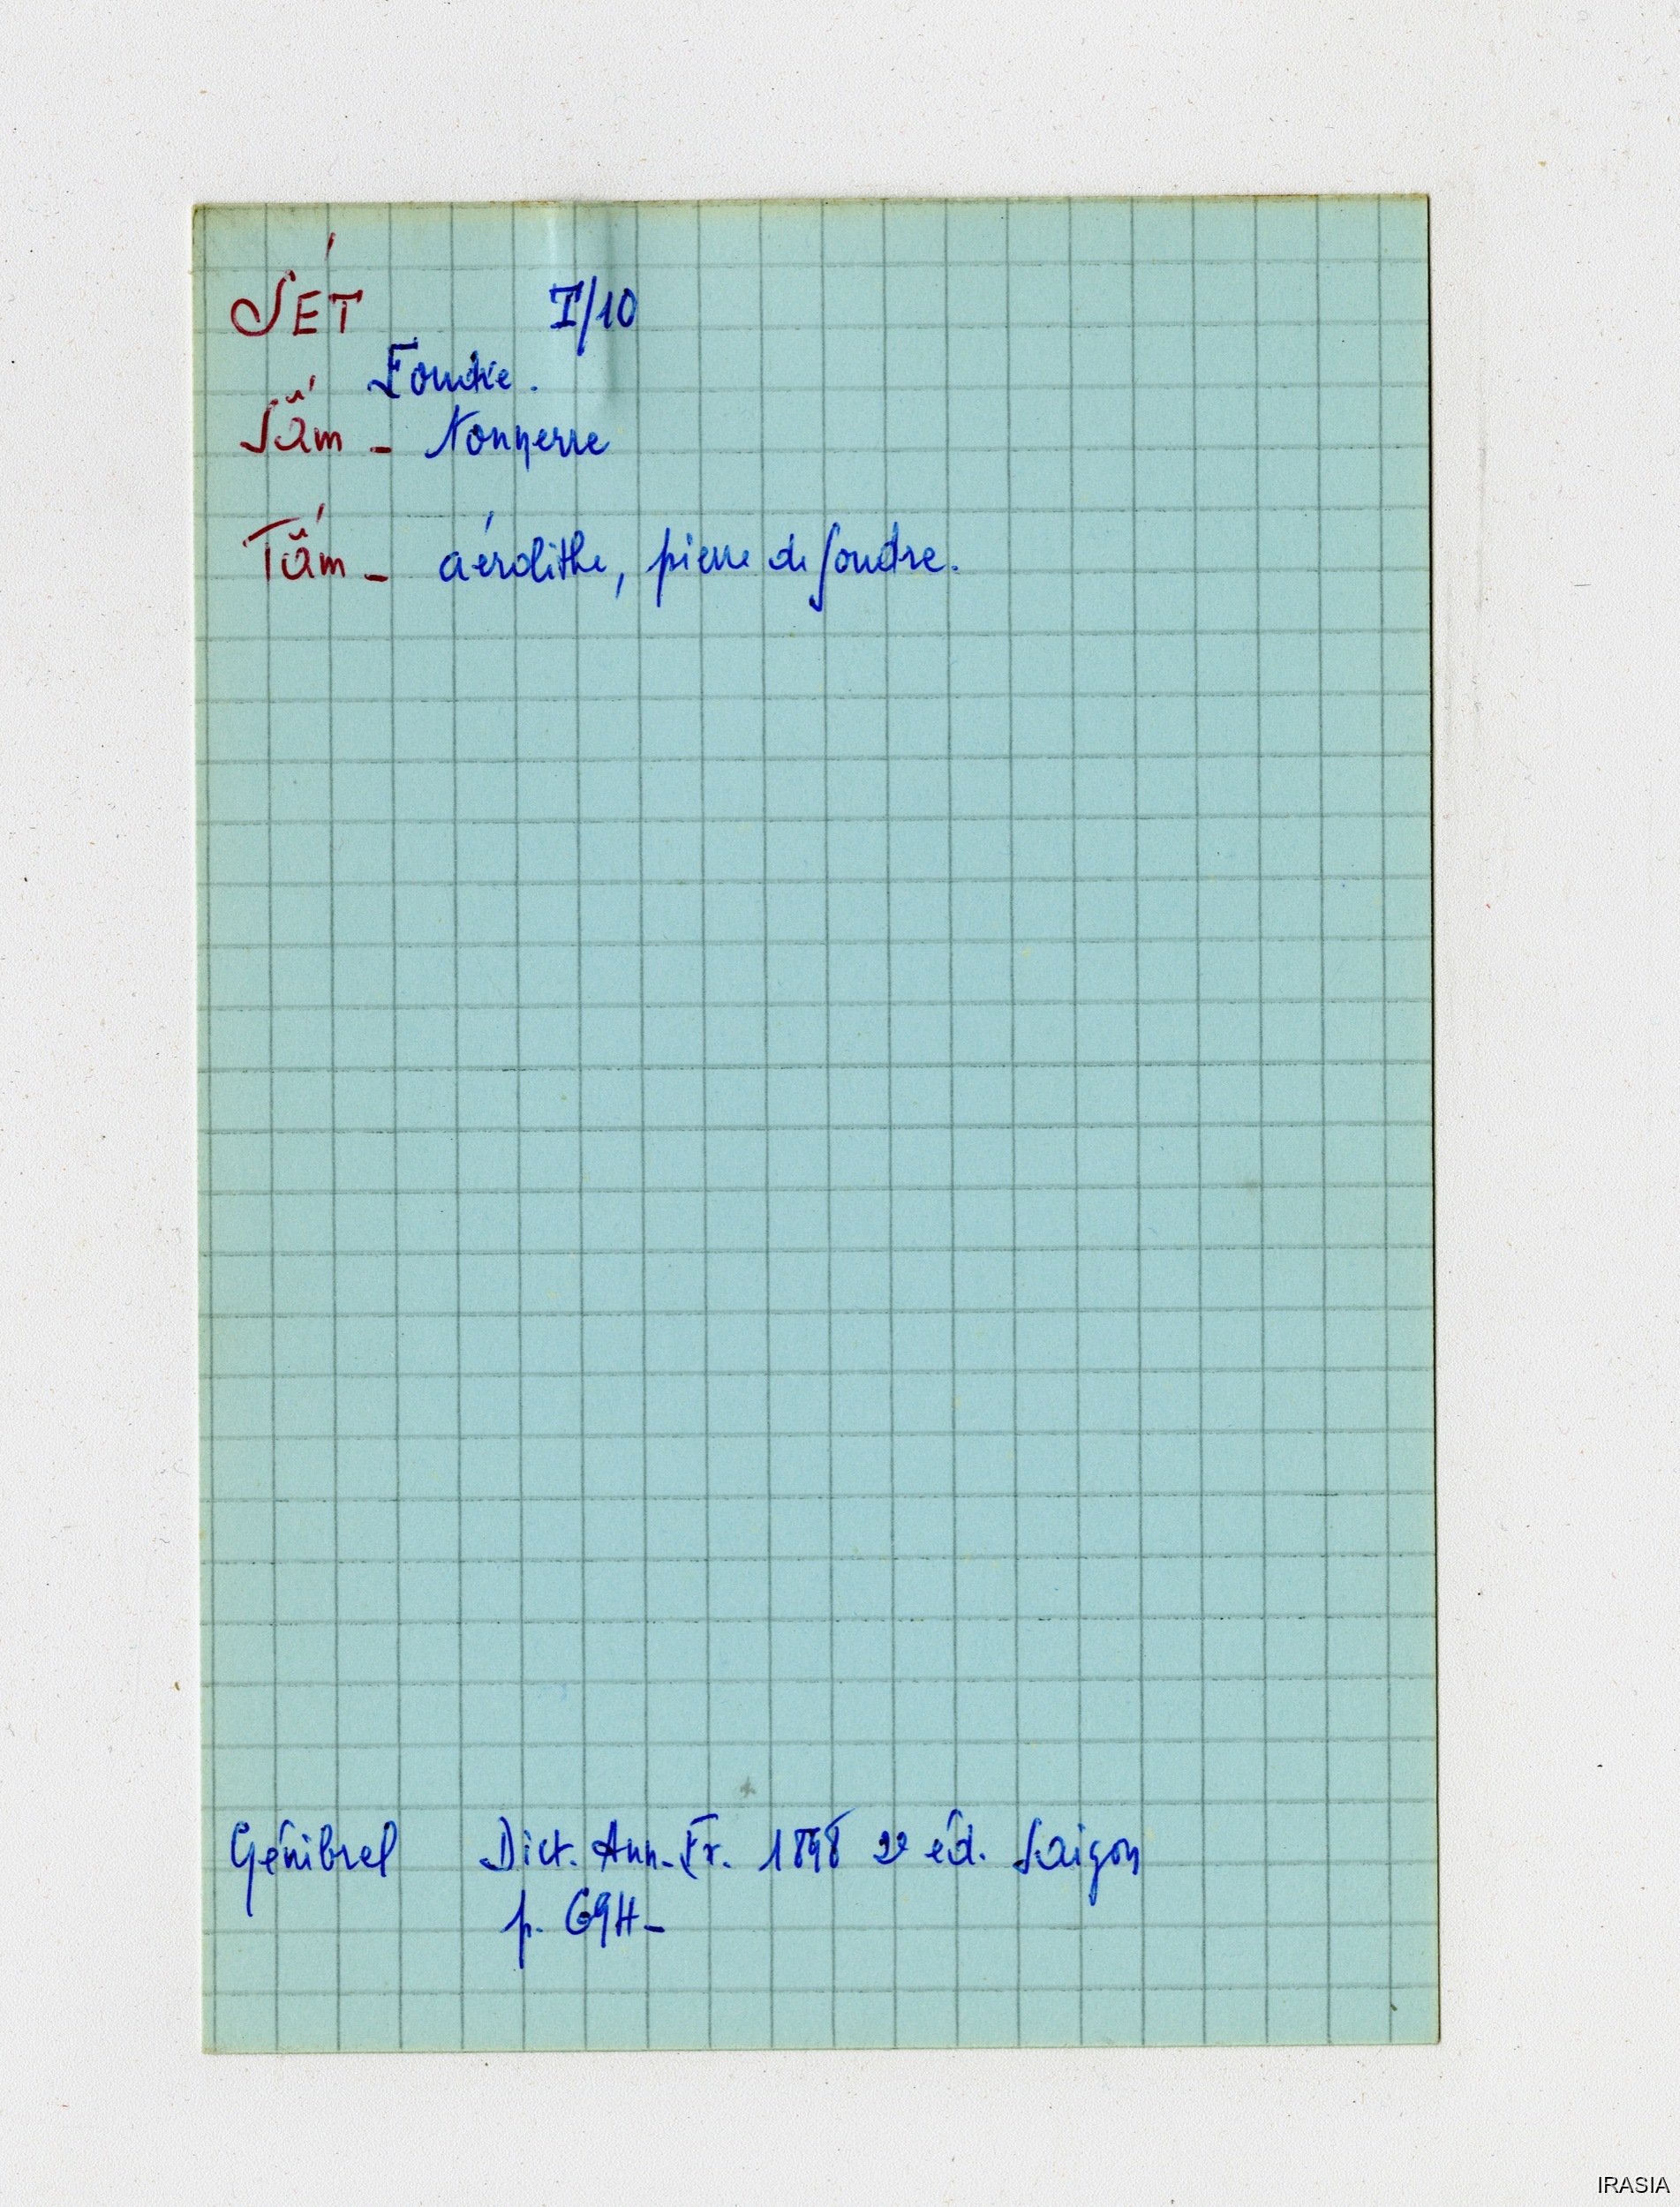 SÉT I/10
Foudre.
Sấm - Tonnerre
Tấm - aérolithe, pierre de foudre.
Génibrel Dict. Ann. Fr. 1898 2e éd. Saigon
p. 694 -
IRASIA